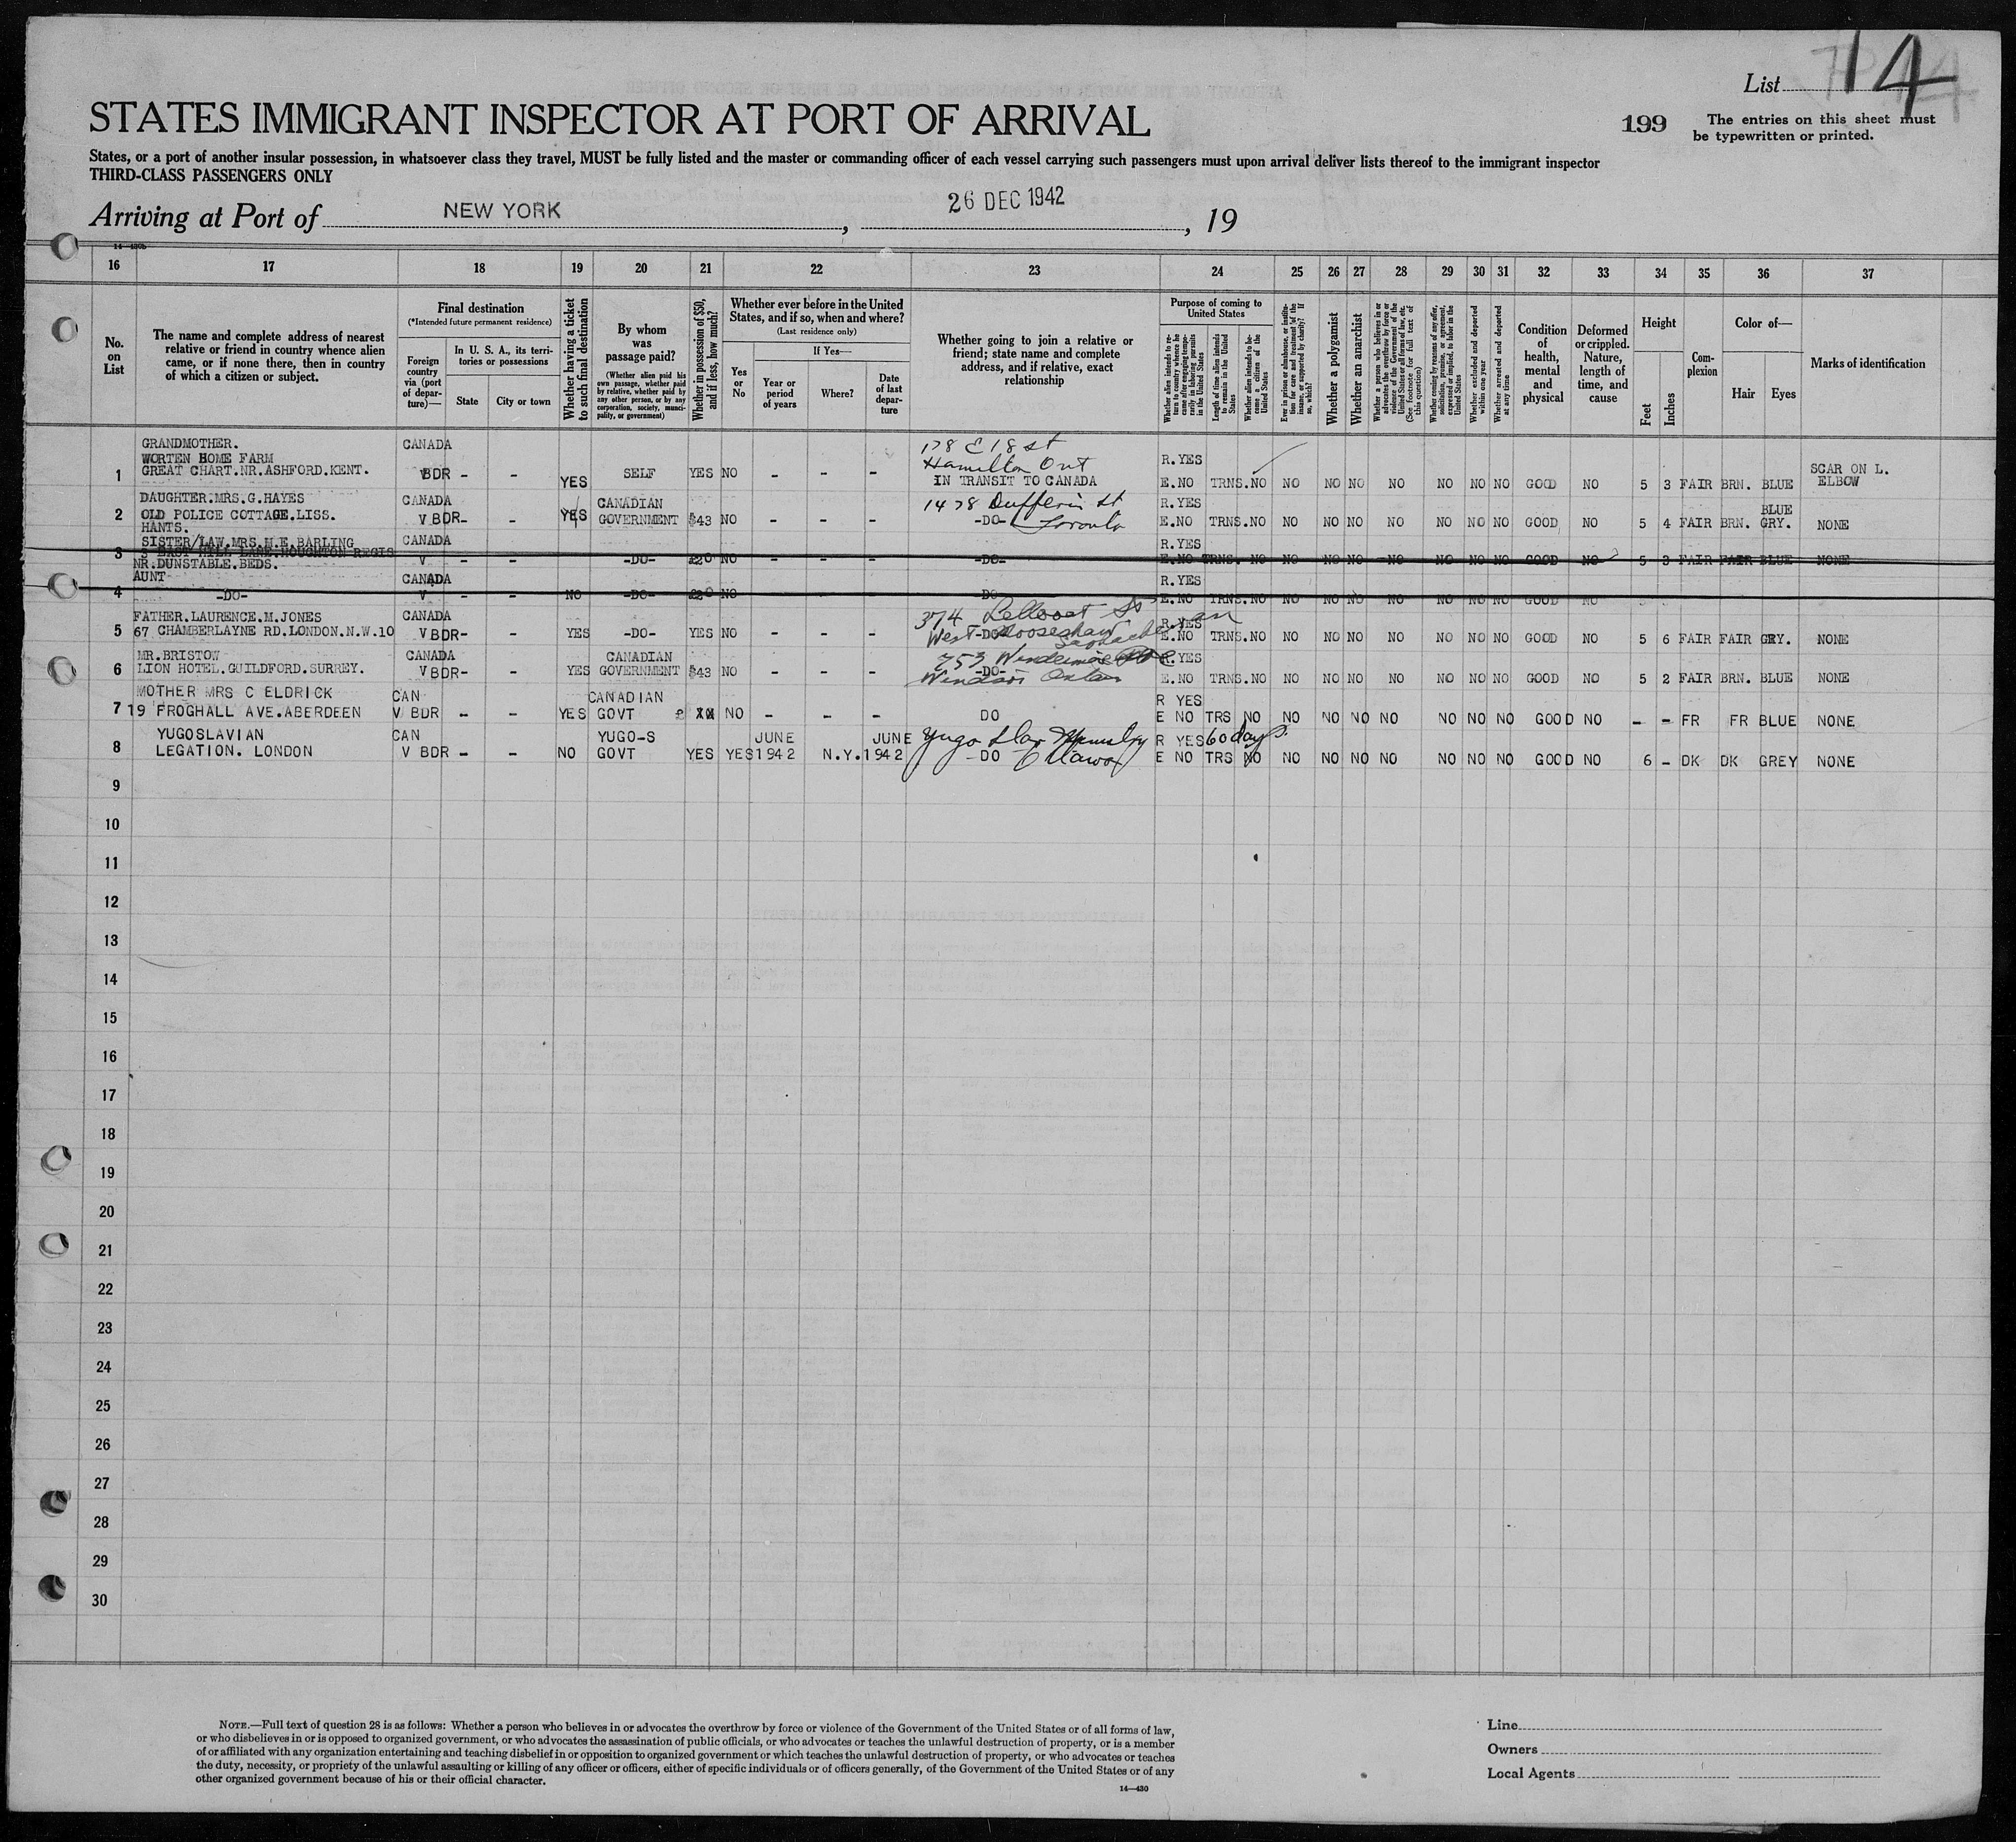 List 14
STATES IMMIGRANT INSPECTOR AT PORT OF ARRIVAL
199 The entries on this sheet must
be typewritten or printed.
States, or a port of another insular possession, in whatsoever class they travel, MUST be fully listed and the master or commanding officer of each vessel carrying such passengers must upon arrival deliver lists thereof to the immigrant inspector
THIRD-CLASS PASSENGERS ONLY
Arriving at Port of NEW YORK, 26 DEC 1942, 19
14—430b
16 17 18 19 20 21 22 23 24 25 26 27 28 29 30 31 32 33 34 35 36 37
No. on List
The name and complete address of nearest relative or friend in country whence alien came, or if none there, then in country of which a citizen or subject.
Final destination
(*Intended future permanent residence)
Foreign country via (port of departure)—
In U. S. A., its territories or possessions
State
City or town
Whether having a ticket to such final destination
By whom was passage paid?
(Whether alien paid his own passage, whether paid by relative, whether paid by any other person, or by any corporation, society, municipality, or government)
Whether in possession of $50, and if less, how much?
Whether ever before in the United States, and if so, when and where?
(Last residence only)
Yes or No
If Yes—
Year or period of years
Where?
Date of last departure
Whether going to join a relative or friend; state name and complete address, and if relative, exact relationship
Purpose of coming to United States
Whether alien intends to return to country whence he came after engaging temporarily in laboring pursuits in the United States
Length of time alien intends to remain in the United States
Whether alien intends to become a citizen of the United States
Ever in prison or almshouse, or institution for care and treatment of the insane, or supported by charity? If so, which?
Whether a polygamist
Whether an anarchist
Whether a person who believes in or advocates the overthrow by force or violence of the Government of the United States or of all forms of law, etc. (See footnote for full text of this question)
Whether coming by reasons of any offer, solicitation, promise, or agreement, expressed or implied, to labor in the United States
Whether excluded and deported within one year
Whether arrested and deported at any time
Condition of health, mental and physical
Deformed or crippled. Nature, length of time, and cause
Height
Feet
Inches
Complexion
Color of—
Hair
Eyes
Marks of identification
GRANDMOTHER. CANADA 178 E 18 St
WORTEN HOME FARM Hamilton Ont R.YES
1 GREAT CHART.NR.ASHFORD.KENT. V BDR - - YES SELF YES NO - - - IN TRANSIT TO CANADA E.NO TRNS.NO NO NO NO NO NO NO NO GOOD NO 5 3 FAIR BRN. BLUE SCAR ON L. ELBOW
DAUGHTER.MRS.G.HAYES CANADA CANADIAN 1478 Dufferin St R.YES
2 OLD POLICE COTTAGE.LISS. V BDR- - YES GOVERNMENT $43 NO - - - -DO- Toronto E.NO TRNS.NO NO NO NO NO NO NO NO GOOD NO 5 4 FAIR BRN. BLUE GRY. NONE
HANTS.
SISTER/LAW.MRS.M.E.BARLING CANADA R.YES
3 3 EAST HILL LANE.HOUGHTON REGIS V - - -DO- NO - - - -DO- E.NO TRNS. NO NO NO NO NO NO NO NO GOOD NO 5 3 FAIR FAIR BLUE NONE
NR.DUNSTABLE.BEDS.
AUNT CANADA R.YES
4 -DO- V - - NO -DO- NO - - - DO E.NO TRNS.NO NO NO NO NO NO NO NO GOOD NO
FATHER.LAURENCE.M.JONES CANADA 374 R.YES
5 67 CHAMBERLAYNE RD.LONDON.N.W.10 V BDR- - YES -DO- YES NO - - - West -DO- Moosejaw Saskatchewan E.NO TRNS.NO NO NO NO NO NO NO NO GOOD NO 5 6 FAIR FAIR GRY. NONE
MR.BRISTOW CANADA CANADIAN 753 R.YES
6 LION HOTEL.GUILDFORD.SURREY. V BDR- - YES GOVERNMENT $43 NO - - - -DO- Windsor E.NO TRNS.NO NO NO NO NO NO NO NO GOOD NO 5 2 FAIR BRN. BLUE NONE
MOTHER MRS C ELDRICK CAN CANADIAN R YES
7 19 FROGHALL AVE.ABERDEEN V BDR - - YES GOVT NO - - - DO E NO TRS NO NO NO NO NO NO NO NO GOOD NO - - FR FR BLUE NONE
YUGOSLAVIAN CAN YUGO-S JUNE JUNE Yugo Slav R YES 60 days
8 LEGATION. LONDON V BDR - - NO GOVT YES YES 1942 N.Y. 1942 -DO Ottawa E NO TRS NO NO NO NO NO NO NO NO GOOD NO 6 - DK DK GREY NONE
9
10
11
12
13
14
15
16
17
18
19
20
21
22
23
24
25
26
27
28
29
30
NOTE.—Full text of question 28 is as follows: Whether a person who believes in or advocates the overthrow by force or violence of the Government of the United States or of all forms of law,
or who disbelieves in or is opposed to organized government, or who advocates the assassination of public officials, or who advocates or teaches the unlawful destruction of property, or is a member
of or affiliated with any organization entertaining and teaching disbelief in or opposition to organized government or which teaches the unlawful destruction of property, or who advocates or teaches
the duty, necessity, or propriety of the unlawful assaulting or killing of any officer or officers, either of specific individuals or of officers generally, of the Government of the United States or of any
other organized government because of his or their official character.
14—430
Line
Owners
Local Agents